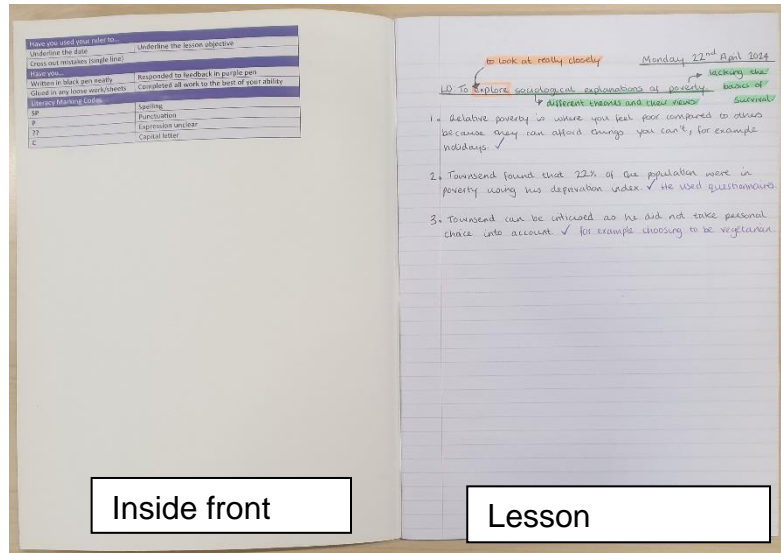 Have you used your ruler to...
Underline the date
Underline the lesson objective
Cross out mistakes (single line)
Have you...
Written in black pen neatly
Responded to feedback in purple pen
Glued in any loose work/sheets
Completed all work to the best of your ability
Literacy Marking Codes
SP
Spelling
P
Punctuation
??
Expression unclear
C
Capital letter
to look at really closely
Monday 22nd April 2024
lacking the
LO: To explore sociological explanations of poverty
basics of
different theories and their views
survival
1. Relative poverty is where you feel poor compared to others
because they can afford things you can't, for example
holidays. ✓
2. Townsend found that 22% of the population were in
poverty using his deprivation index. ✓ He used questionnaires
3. Townsend can be criticised as he did not take personal
choice into account ✓ for example choosing to be vegetarian
Inside front
Lesson